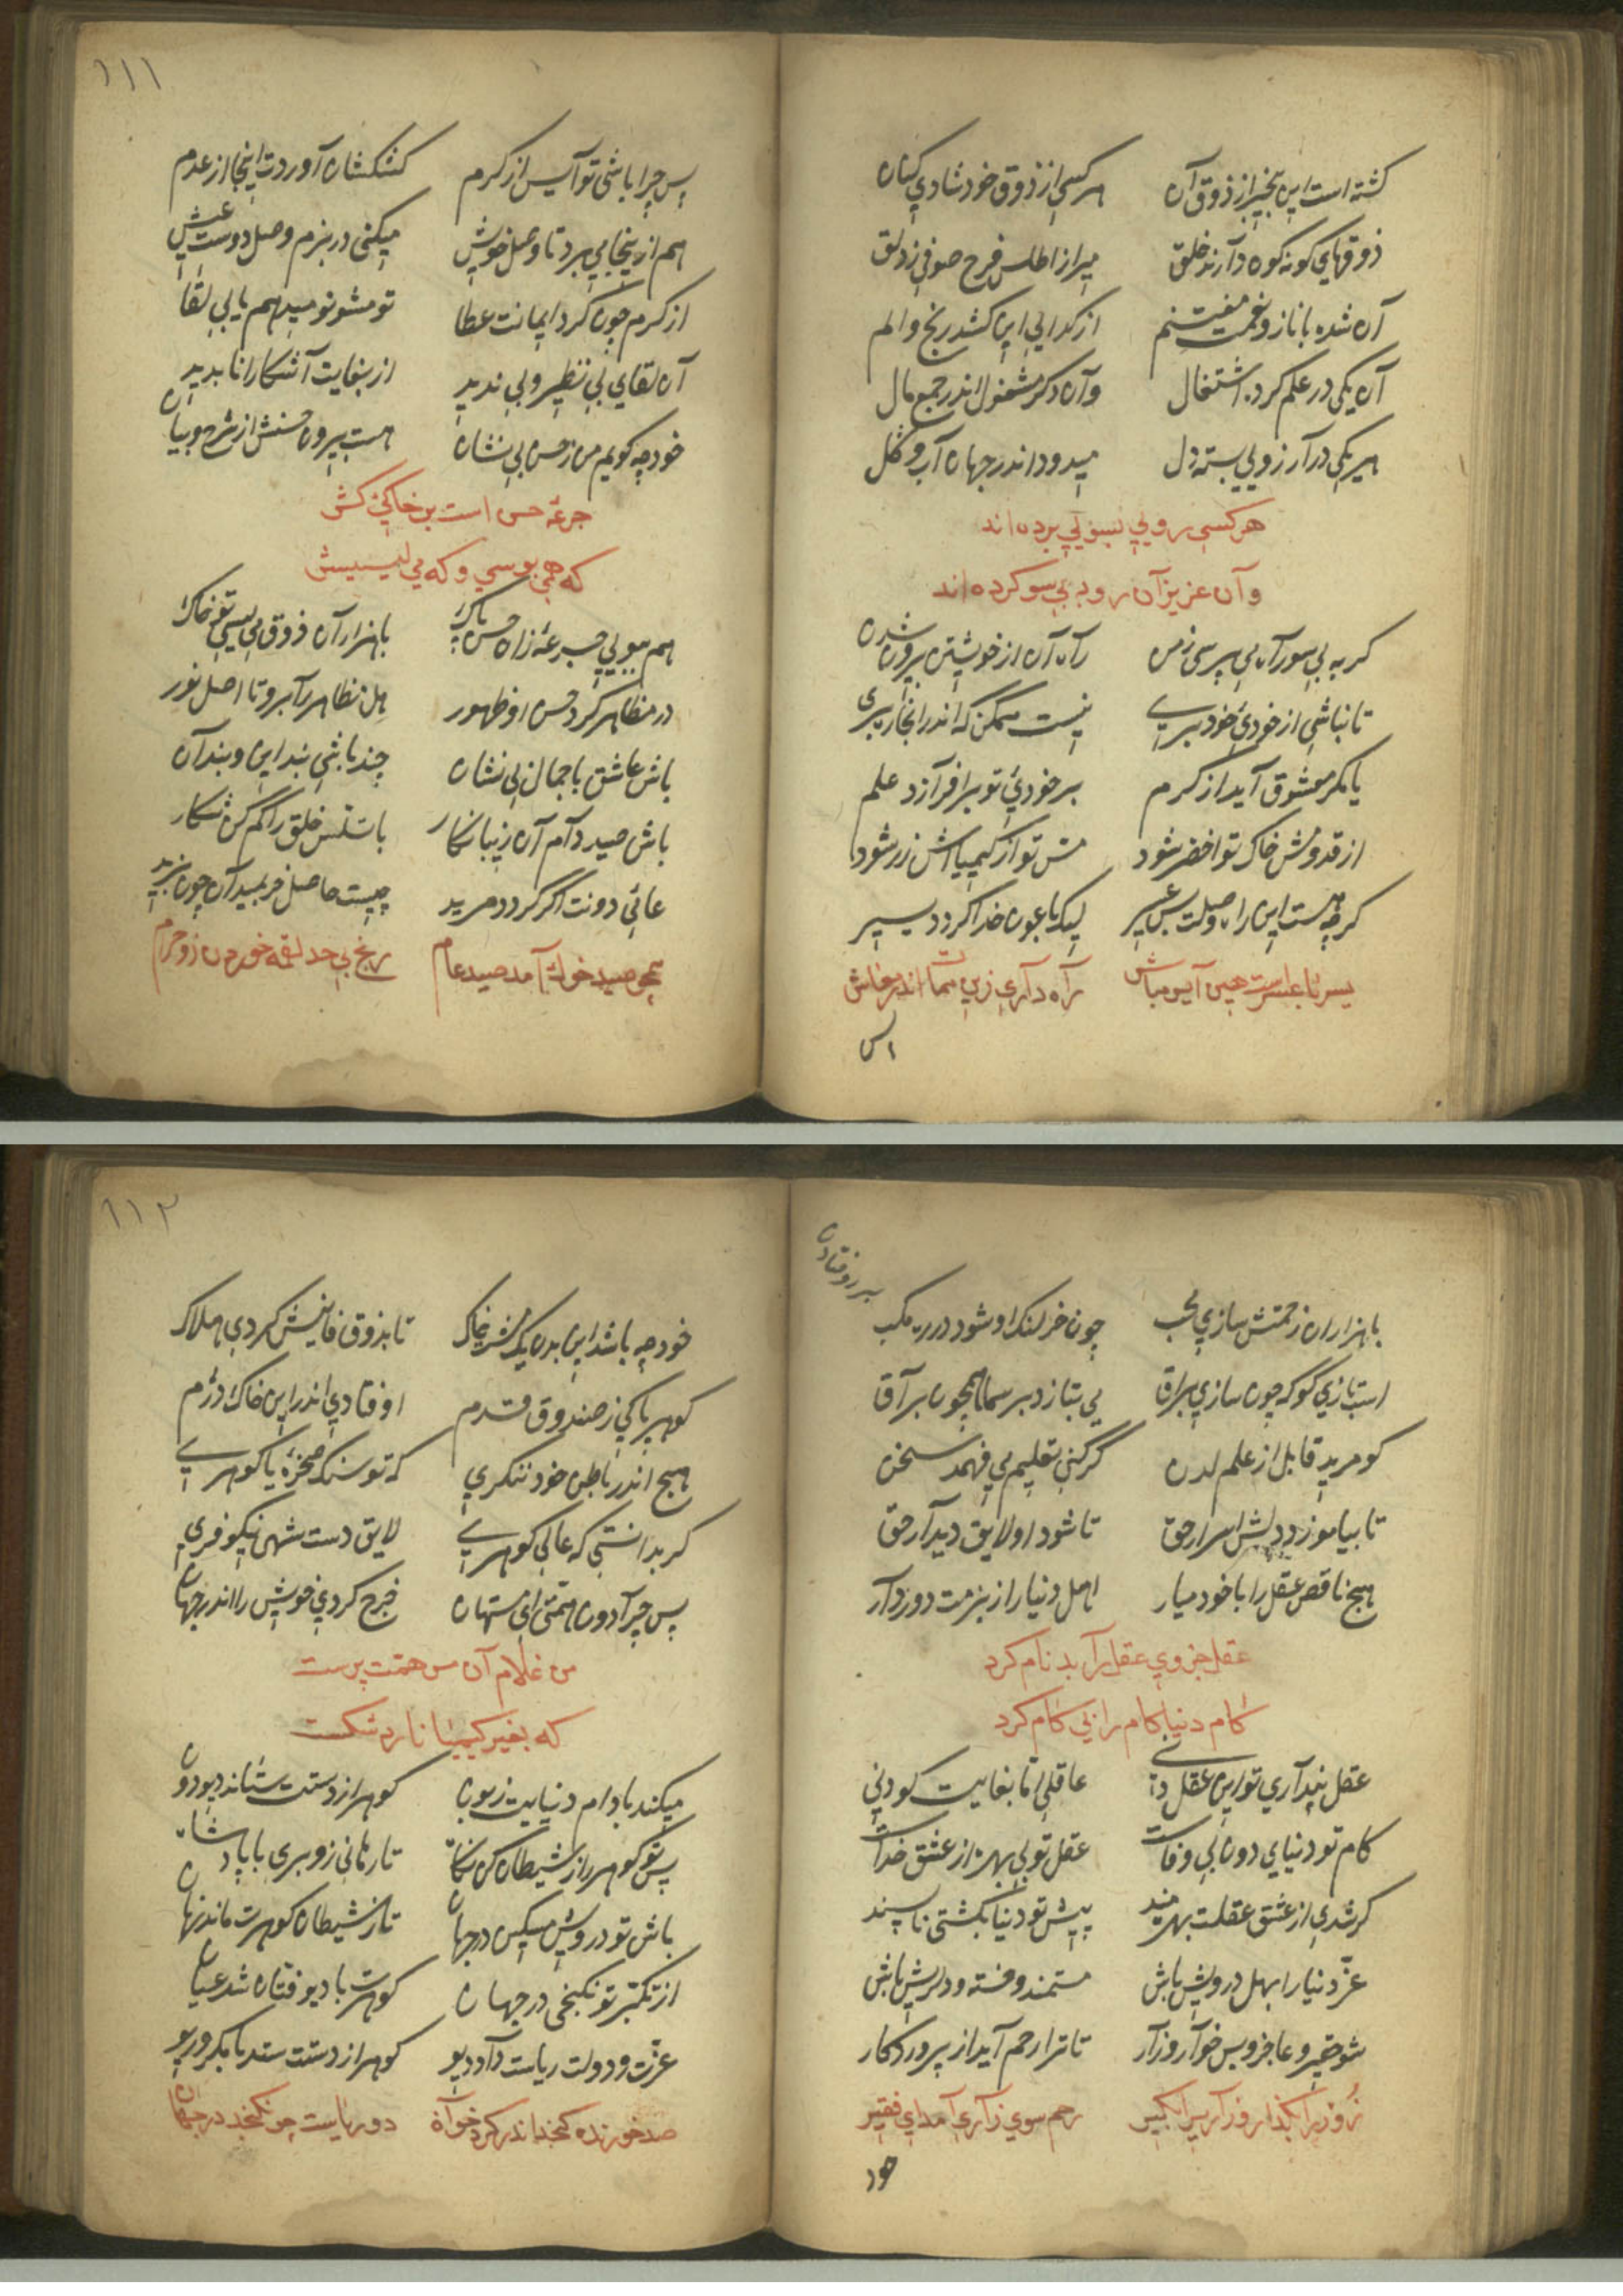 گشته است این بیخبر از ذوق آن هر کسی از ذوق خود شادی کنان
ذوقهای گونه گونه دارند خلق میر از اطلس فرح صوفی ز دلق
آن شده با ناز و نعمت مغتنم از گدایی این کشد رنج و الم
آن یکی در علم کرده اشتغال وآن دگر مشغول اندر جمع مال
هر یکی در آرزویی بسته دل میدود اندر جهان آب و گل
هر کسی رویی بسویی برده اند
وآن عزیزان رو به بی سو کرده اند
گر به بی سو راه می پرسی ز من راه آن از خویشتن بیرون شدن
تا نباشی از خودی خود بری نیست ممکن که اندر آنجا ره بری
یا مگر معشوق آید از کرم بر خودی تو برافرازد علم
از قدومش خاک تو اخضر شود مس تو از کیمیااش زر شود
گرچه هست این راه وصلت بس عسیر لیک با عون خدا گردد یسیر
یسر با عسر است هین آیس مباش راه داری زین ممات اندر معاش
اس
۱۱۱
پس چرا باشی تو آیس از کرم کشکشان آوردت اینجا از عدم
هم ازینجا می برد تا وصل خویش میکنی در بزم وصل دوست عیش
از کرم چون کرد ایمانت عطا تو مشو نومید هم یابی لقا
آن لقای بی نظیر و بی ندید از بغایت آشکارا ناپدید
خود چه گویم من ز حسن بی نشان هست بیرون حسنش از شرح و بیان
جرعه حسن است بن خاک کش
که همی بوسی و که می لیسیش
هم ببویی جرعه زان حسن پاک با هزار آن ذوق می لیسی تو خاک
در مظاهر کرد حسن او ظهور هل مظاهر را برو تا اصل نور
باش عاشق با جمال بی نشان چند باشی بند این و بند آن
باش صید دام آن زیبا نگار با تلبس خلق را کم کن شکار
عامی دونت اگر گردد مرید چیست حاصل خر بمیدان چون پرید
همچو صید خوک آمد صید عام رنج بی حد لقمه خوردن زو حرام
برو فتاد
با هزاران زحمتش سازی محب چون خر لنگ او شود در ره مکب
اسب تازی گو که چون سازی براق می بتازد بر سما همچون براق
کو مرید قابل از علم لدن گر کنی تعلیم می فهمد سخن
تا بیاموزد دلش اسرار حق تا شود او لایق دیدار حق
هیچ ناقص عقل را با خود میار اهل دنیا را ز بزمت دور دار
عقل جزوی عقل را بدنام کرد
کام دنیا کام را بی کام کرد
عقل پنداری تو این عقل دنی عاقلی اما بغایت کودنی
کام تو دنیای دون بی وفاست عقل تو بی بهره از عشق خداست
گر شدی از عشق عقلت بهره مند پیش تو دنیا بگشتی ناپسند
عز دنیا را بهل درویش باش مستمند و خسته و دلریش باش
شو حقیر و عاجز و بس خوار و زار تا ترا رحم آید از پروردگار
زور را بگذار و زاری را بگیر رحم سوی زاری آمد ای فقیر
خود
۱۱۲
خود چه باشد این بدن یک مشت خاک تا بذوق فانیش گردی هلاک
گوهر پاکی ز صندوق قدم اوفتادی اندر این خاک دژم
هیچ اندر باطن خود ننگری که تو سنگ صخره یا گوهری
گر بدانستی که عالی گوهری لایق دست شهی نیکو فری
پس چرا دون همتی ای مستهان خرج کردی خویش را اندر جهان
من غلام آن مس همت پرست
که بغیر کیمیا نارد شکست
میکند با دام دنیایت زبون گوهر از دستت ستاند دیو دون
پس تو گوهر را ز شیطان کن نگاه تا رهانی زو بری با پادشاه
باش تو درویش مسکین در جهان تا ز شیطان گوهرت ماند نهان
از تکبر تو نگنجی در جهان گوهرت با دیو فتان شد عیان
عزت و دولت ریاست داد دیو گوهر از دستت ستد با مکر و ریو
صد خورنده گنجد اندر گرد خوان دو ریاست جو نگنجد در جهان